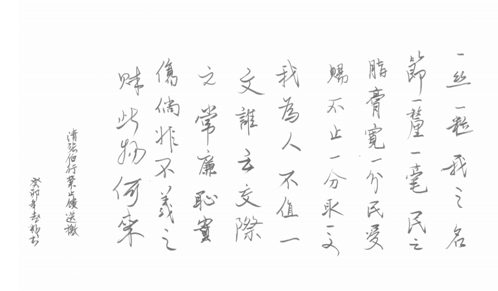 一丝一粒我之名
節一釐一毫民之
脂膏寬一分民受
賜不止一分取一文
我為人不值一
文誰云交際
之常廉恥實
傷倘非不義之
财此物何来
清張伯行禁止饋送檄
癸卯年